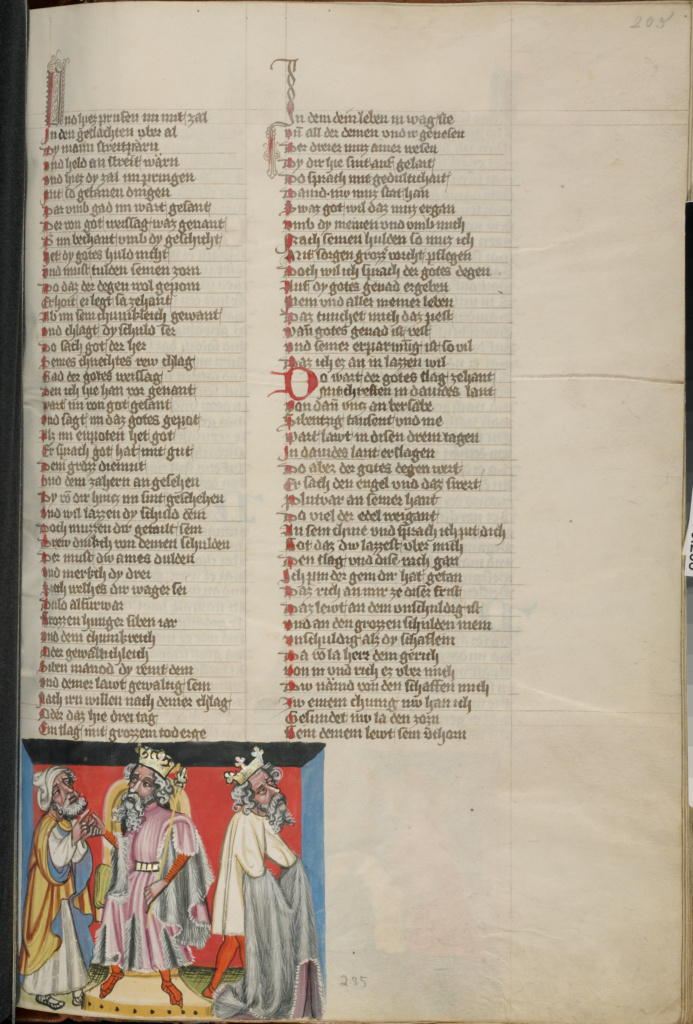 205
Und hiez prufen im mit zal
In den geslachten vber al
Dy mann streitparn
Vnd held an streit wârn
Vnd hiez dy zal im pringen
Mit so getanen dingen
Gad im wart gesant
Der von got weissag waz genant
vmb dy geschicht
Het dy gotes huld nicht
Vnd must dulden seinen zorn
Do daz der degen wol geporn
Erhort er legt sa zehant
Ab im sein chunichleich gewant
Vnd chlagt dy schuld ser
Do sach got der her
Seines chnechtes rew chlag
Gad der gotes weissag
Den ich hie han vor genant
Wart im von got gesant
Vnd sagt im daz gotes gepot
Alz im enpoten het got
Er sprach got hat mit gut
Dein grozz diemut
Vnd dein zahern an gesehen
Dy vor dir hincz im sint geschehen
Vnd wil lazzen dy schuld dein
Doch muzzen dir geteilt sein
Drew dinch von deinen schulden
Der must dw aines dulden
Vnd merkch dy drei
Auch welhes dir wager sei
Duld alfurwar
Grozzen hunger siben iar
Vnd dein chunikreich
Oder gewaltichleich
Siben manod dy veint dein
Vnd deiner lawt gewaltig sein
Nach irn willen nach deiner chlag
Oder daz hie drei tag
Ein slag mit grozzem tod erge
In dem dein leben in wag ste
Vnd all der deinen vnd ir genesen
Der dreier muz ainer wesen
Dy dir hie sint auf gelait
Do sprach mit gedultichait
Dauid nw muz stat han
Swaz got wil daz muz ergan
Vmb dy meinen vnd vmb mich
Nach seinen hulden so muz ich
Mit sorgen grozz voricht pflegen
Doch wil ich sprach der gotes degen
Auf dy gotes genad ergeben
Mein vnd aller meiner leben
Daz dunchet mich daz pest
Wan gotes genad ist vest
Vnd seiner erparmung ist so vil
Daz ich ez an in lazzen wil
Do wart der gotes slag zehant
Mit schreken in dauides lant
Von dan vncz an bersabe
Sibentzig tausent vnd me
Wart lawt in disen drein tagen
In dauides lant erslagen
Do aber der gotes degen wert
Er sach den engel vnd daz swert
Plutvar an seiner hant
Do viel der edel weigant
An sein chnie vnd sprach ich pit dich
Got daz dw lazzest vber mich
Den slag vnd dise rach gan
Ich pin der gein dir hat getan
Daz rich an mir ze diser frist
Daz lewt an dem vnschuldig ist
Vnd an den grozzen schulden mein
Vnschuldig alz dy schaflein
Da von la herr dein gerich
Von in vnd rich ez vber mich
Dw nâmd von den schaffen mich
Zw einem chunig nw han ich
Gesundet nw la den zorn
Sein deinem lewt sein verchorn
235